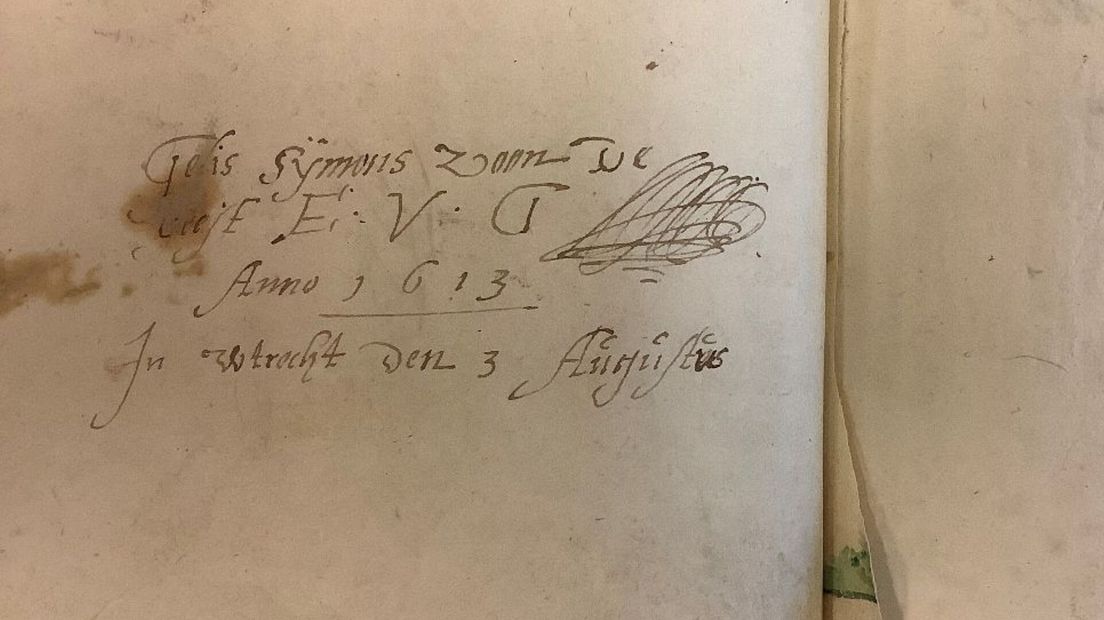 Gelis Sÿmons zoon De
E: V: G
Anno 1613
In wtrecht Den 3 Augustus